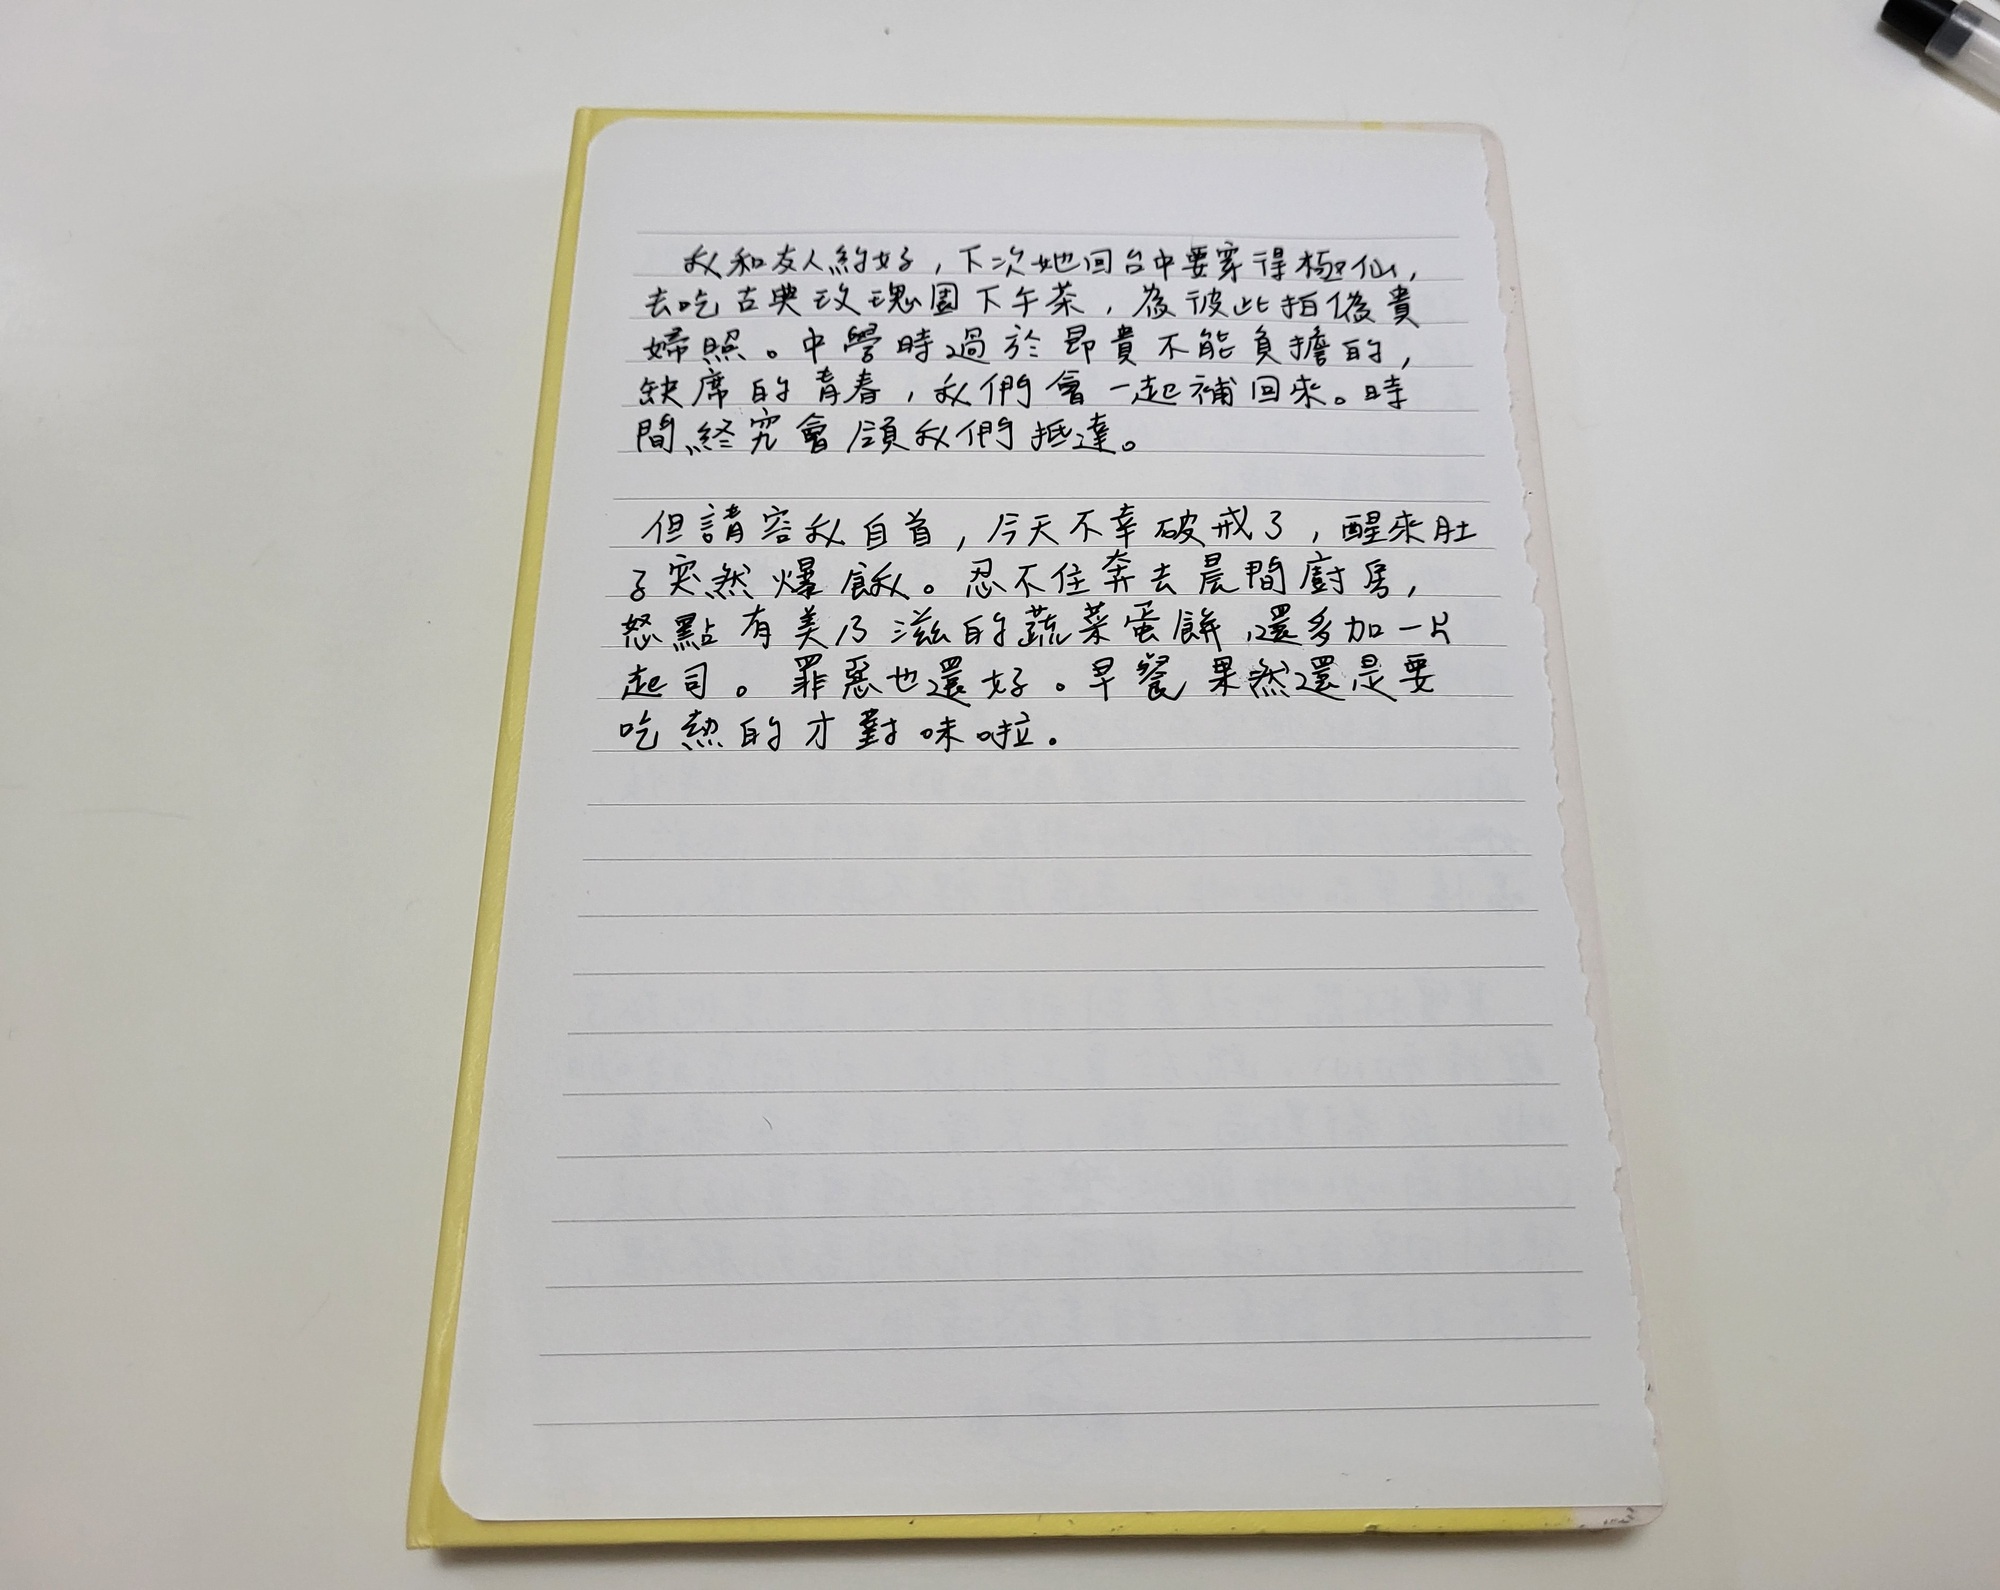 我和友人約好，下次她回台中要穿得極仙，
去吃古典玫瑰園下午茶，為彼此拍偽貴
婦照。中學時過於昂貴不能負擔的，
缺席的青春，我們會一起補回來。時
間終究會領我們抵達。
但請容我自首，今天不幸破戒了，醒來肚
子突然爆餓。忍不住奔去晨間廚房，
怒點有美乃滋的蔬菜蛋餅，還多加一片
起司。罪惡也還好。早餐果然還是要
吃熱的才對味啦。